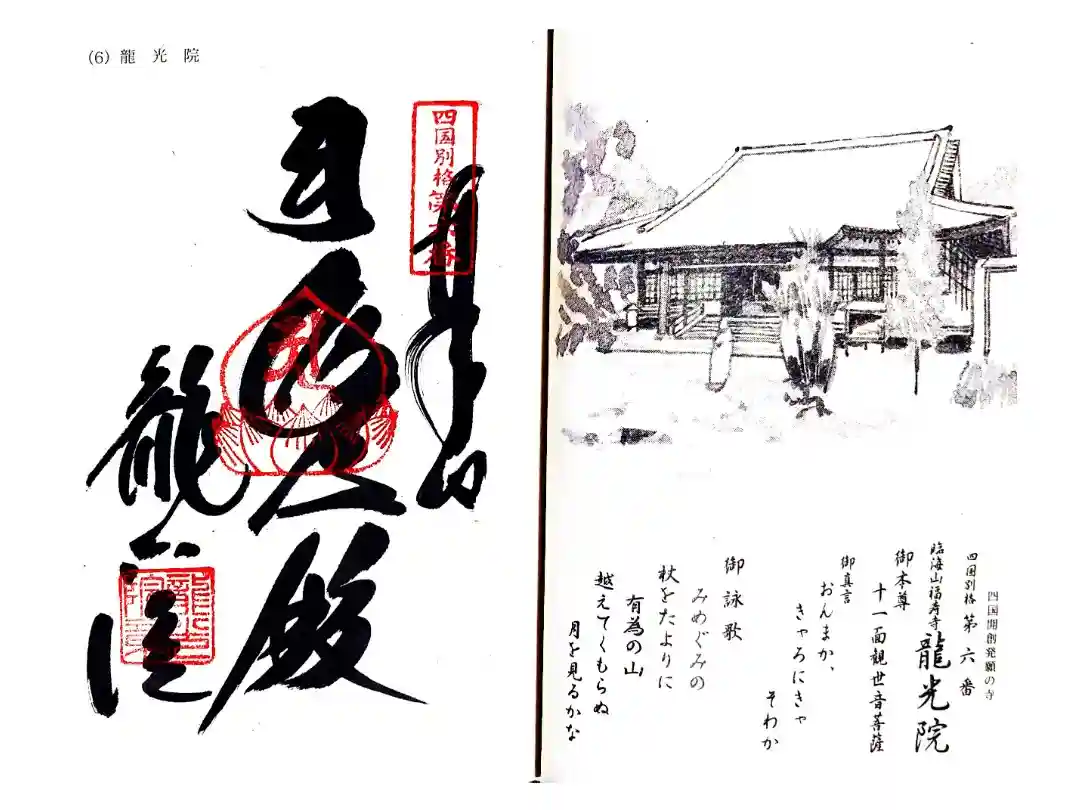 四国開創発願の寺
四国別格 第六番
臨海山福寿寺 龍光院
御本尊
十一面観世音菩薩
御真言
おんまか、
きゃろにきゃ
そわか
御詠歌
みめぐみの
杖をたよりに
有為の山
越えてくもらぬ
月を見るかな
(6) 龍光院
四国別格第六番
龍光院